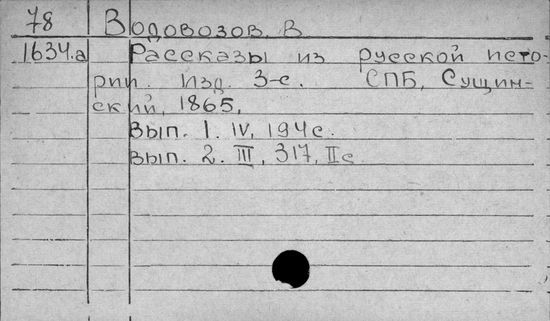 78 Водовозов. В.
1634.а Рассказы из русской исто-
рии. Изд. 3-е. СПБ, Сущин-
ский, 1865.
Вып. 1. IV, 194с.
Вып. 2. III, 317, II с